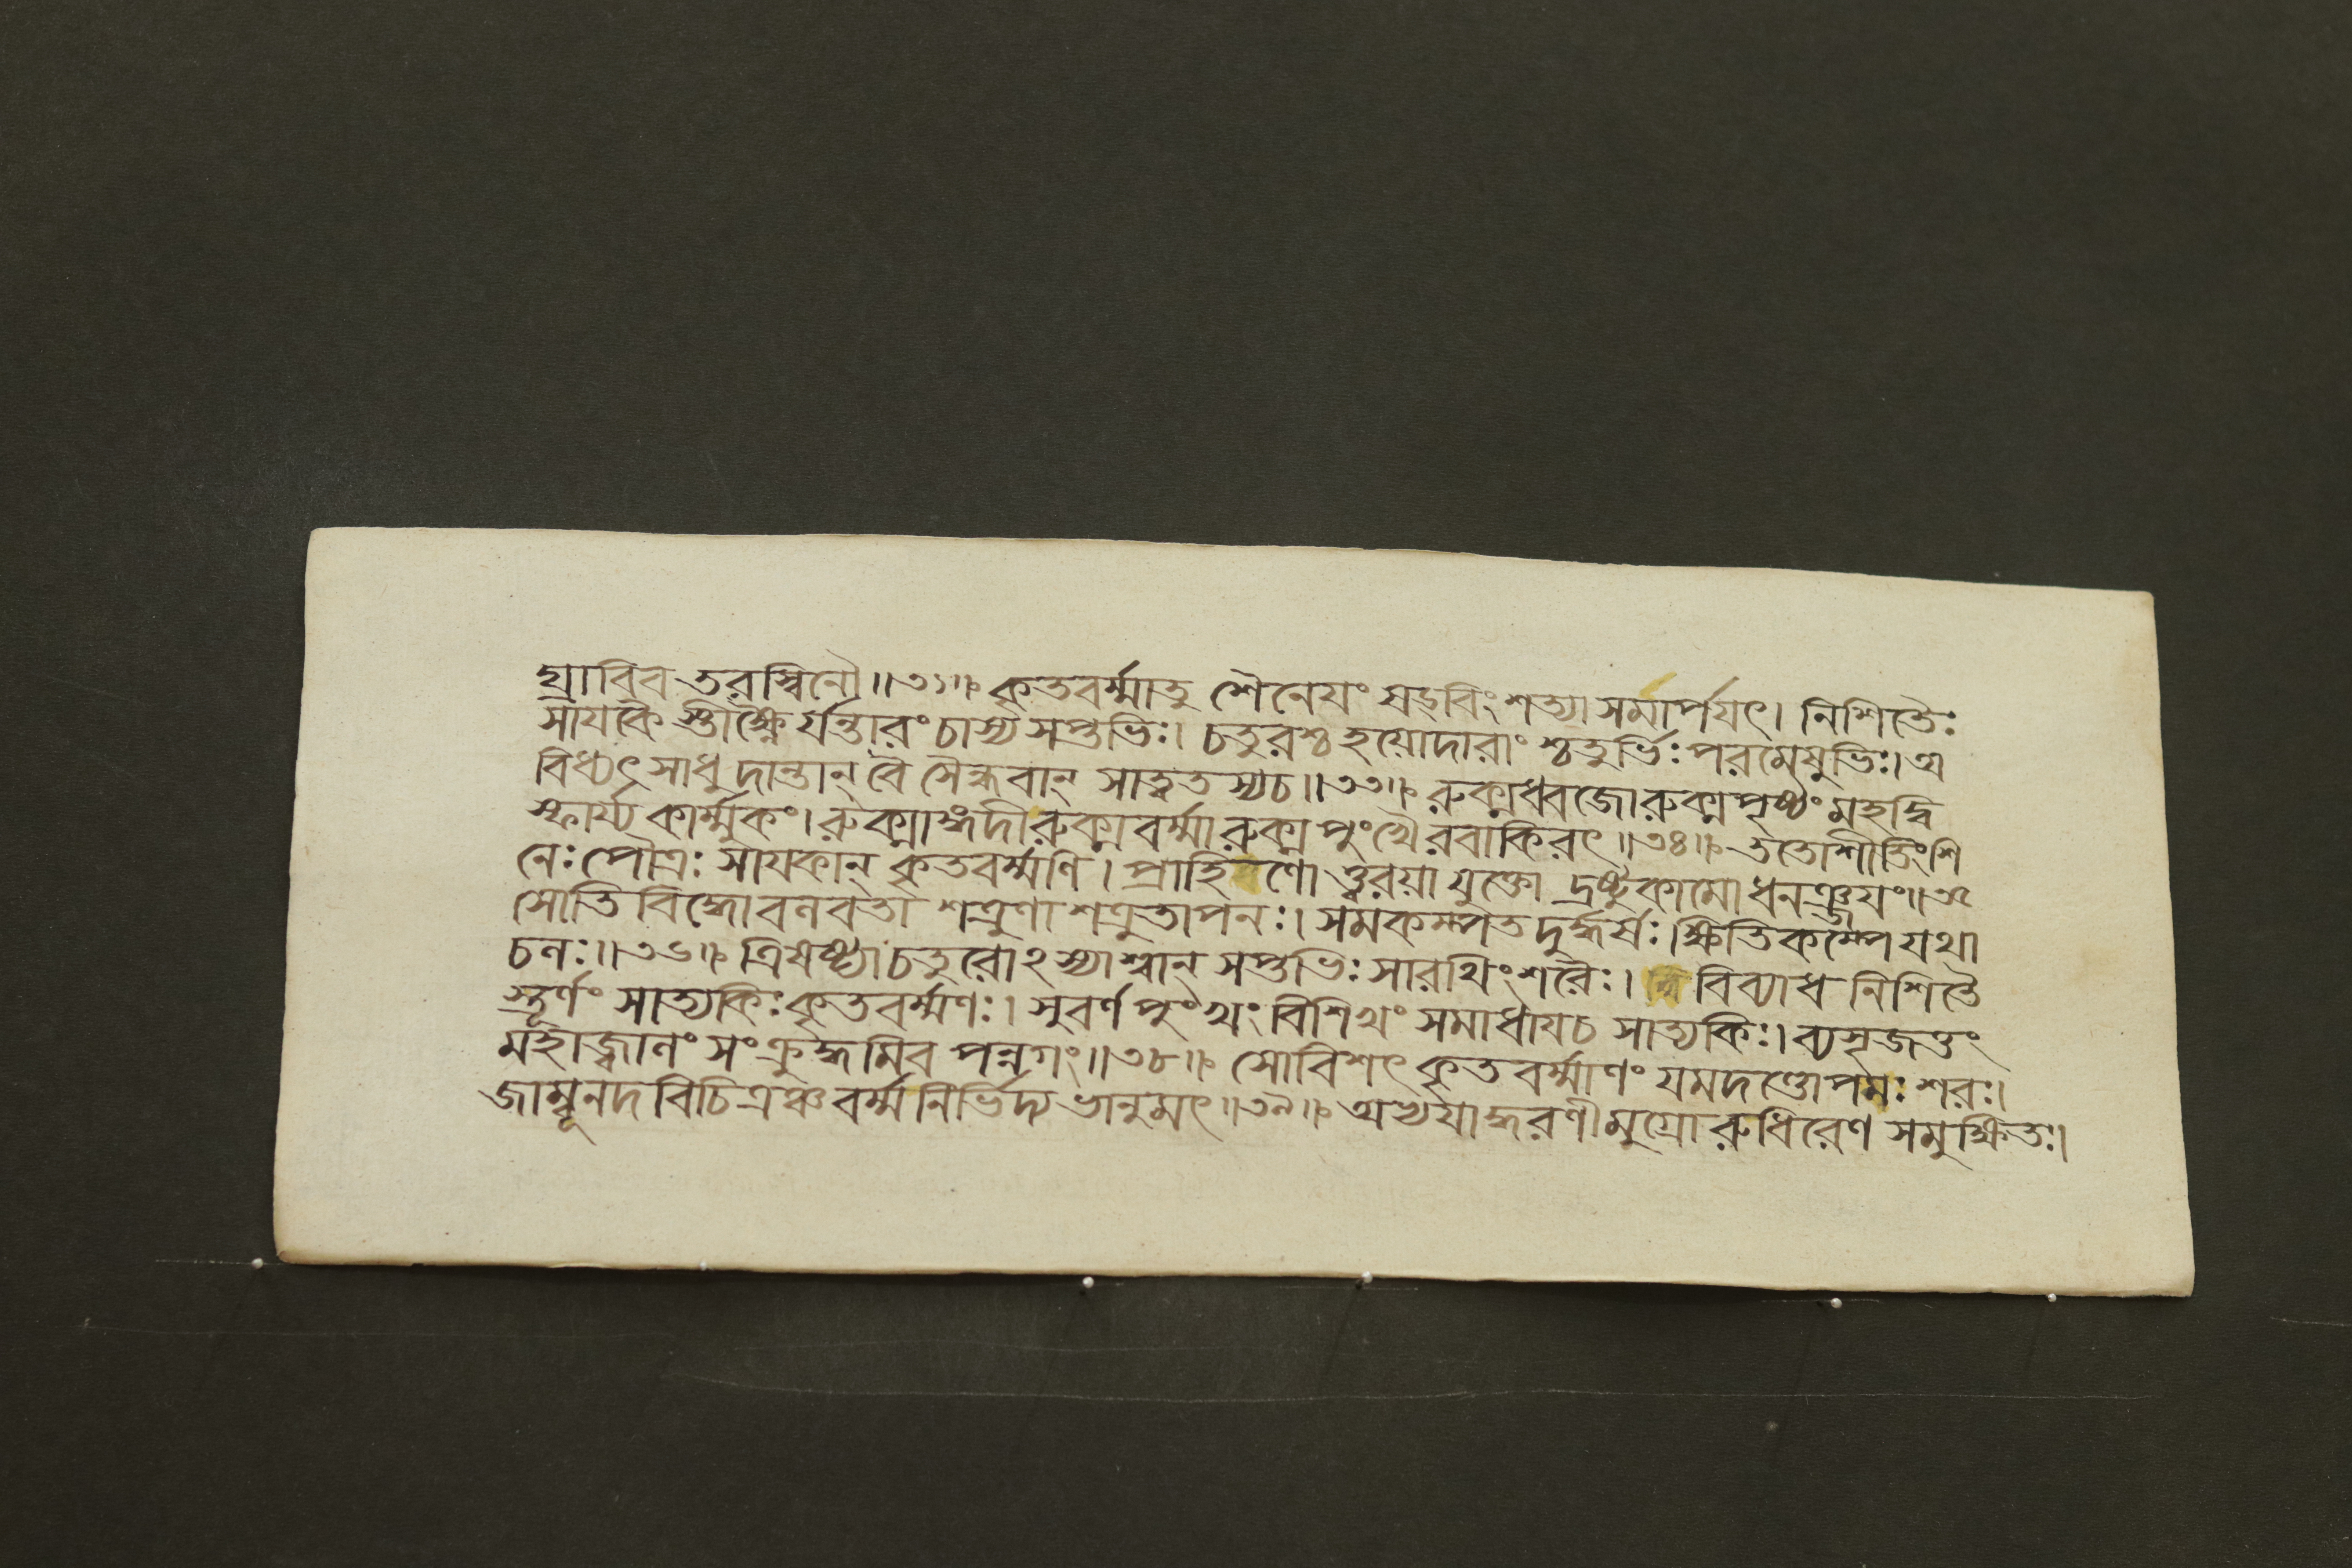 গ্রাবিব তরস্বিনৌ॥৩১॥ কৃতবর্ম্মাতু শৈনেযং ষড়্বিংশত্যা সমার্পযৎ। নিশিতৈঃ
সাযকৈ স্তীক্ষ্ণৈ র্যন্তারং চাস্য সপ্তভিঃ। চতুরশ্চ হয়োদারাং শ্চতুর্ভিঃ পরমেষুভিঃ। অ
বিধ্যৎ সাধু দান্তান্ বৈ সৈন্ধবান্ সাত্বতস্যচ॥৩৩॥ রুক্মধ্বজোরুক্মপৃষ্ঠং মহদ্বি
স্ফার্য্য কার্ম্মুকং। রুক্মাঙ্গদীরুক্মবর্ম্মারুক্মপুংখৈরবাকিরৎ॥৩৪॥ ততোশীতিংশি
নেঃ পৌত্রঃ সাযকান্ কৃতবর্ম্মণি। প্রাহিণো ত্ত্বরয়া যুক্তো দ্রষ্টুকামো ধনঞ্জযং॥৩৫
সোতি বিদ্ধোবনবতা শত্রুণা শত্রুতাপনঃ। সমকম্পত দুর্দ্ধর্ষঃ। ক্ষিতিকম্পে যথা
চনঃ॥৩৬॥ ত্রিষষ্ট্যা চতুরোঽস্যাশ্বান্ সপ্তভিঃ সারথিংশরৈঃ। বিব্যাধ নিশিতৈ
স্তূর্ণং সাত্যকিঃ কৃতবর্ম্মণঃ। সুবর্ণপুংখং বিশিখং সমাধাযচ সাত্যকিঃ। ব্যসৃজত্তং
মহাজ্বাণং সংক্রুদ্ধমিব পন্নগং॥৩৮॥ সোবিশৎ কৃতবর্ম্মাণং যমদণ্ডোপমঃ শরঃ।
জাম্বূনদবিচিত্রঞ্চ বর্ম্ম নির্ভিদ্য ভানুমৎ॥৩৯॥ অভ্যযাদ্ধরণীমুগ্রো রুধিরেণ সমুক্ষিতঃ।